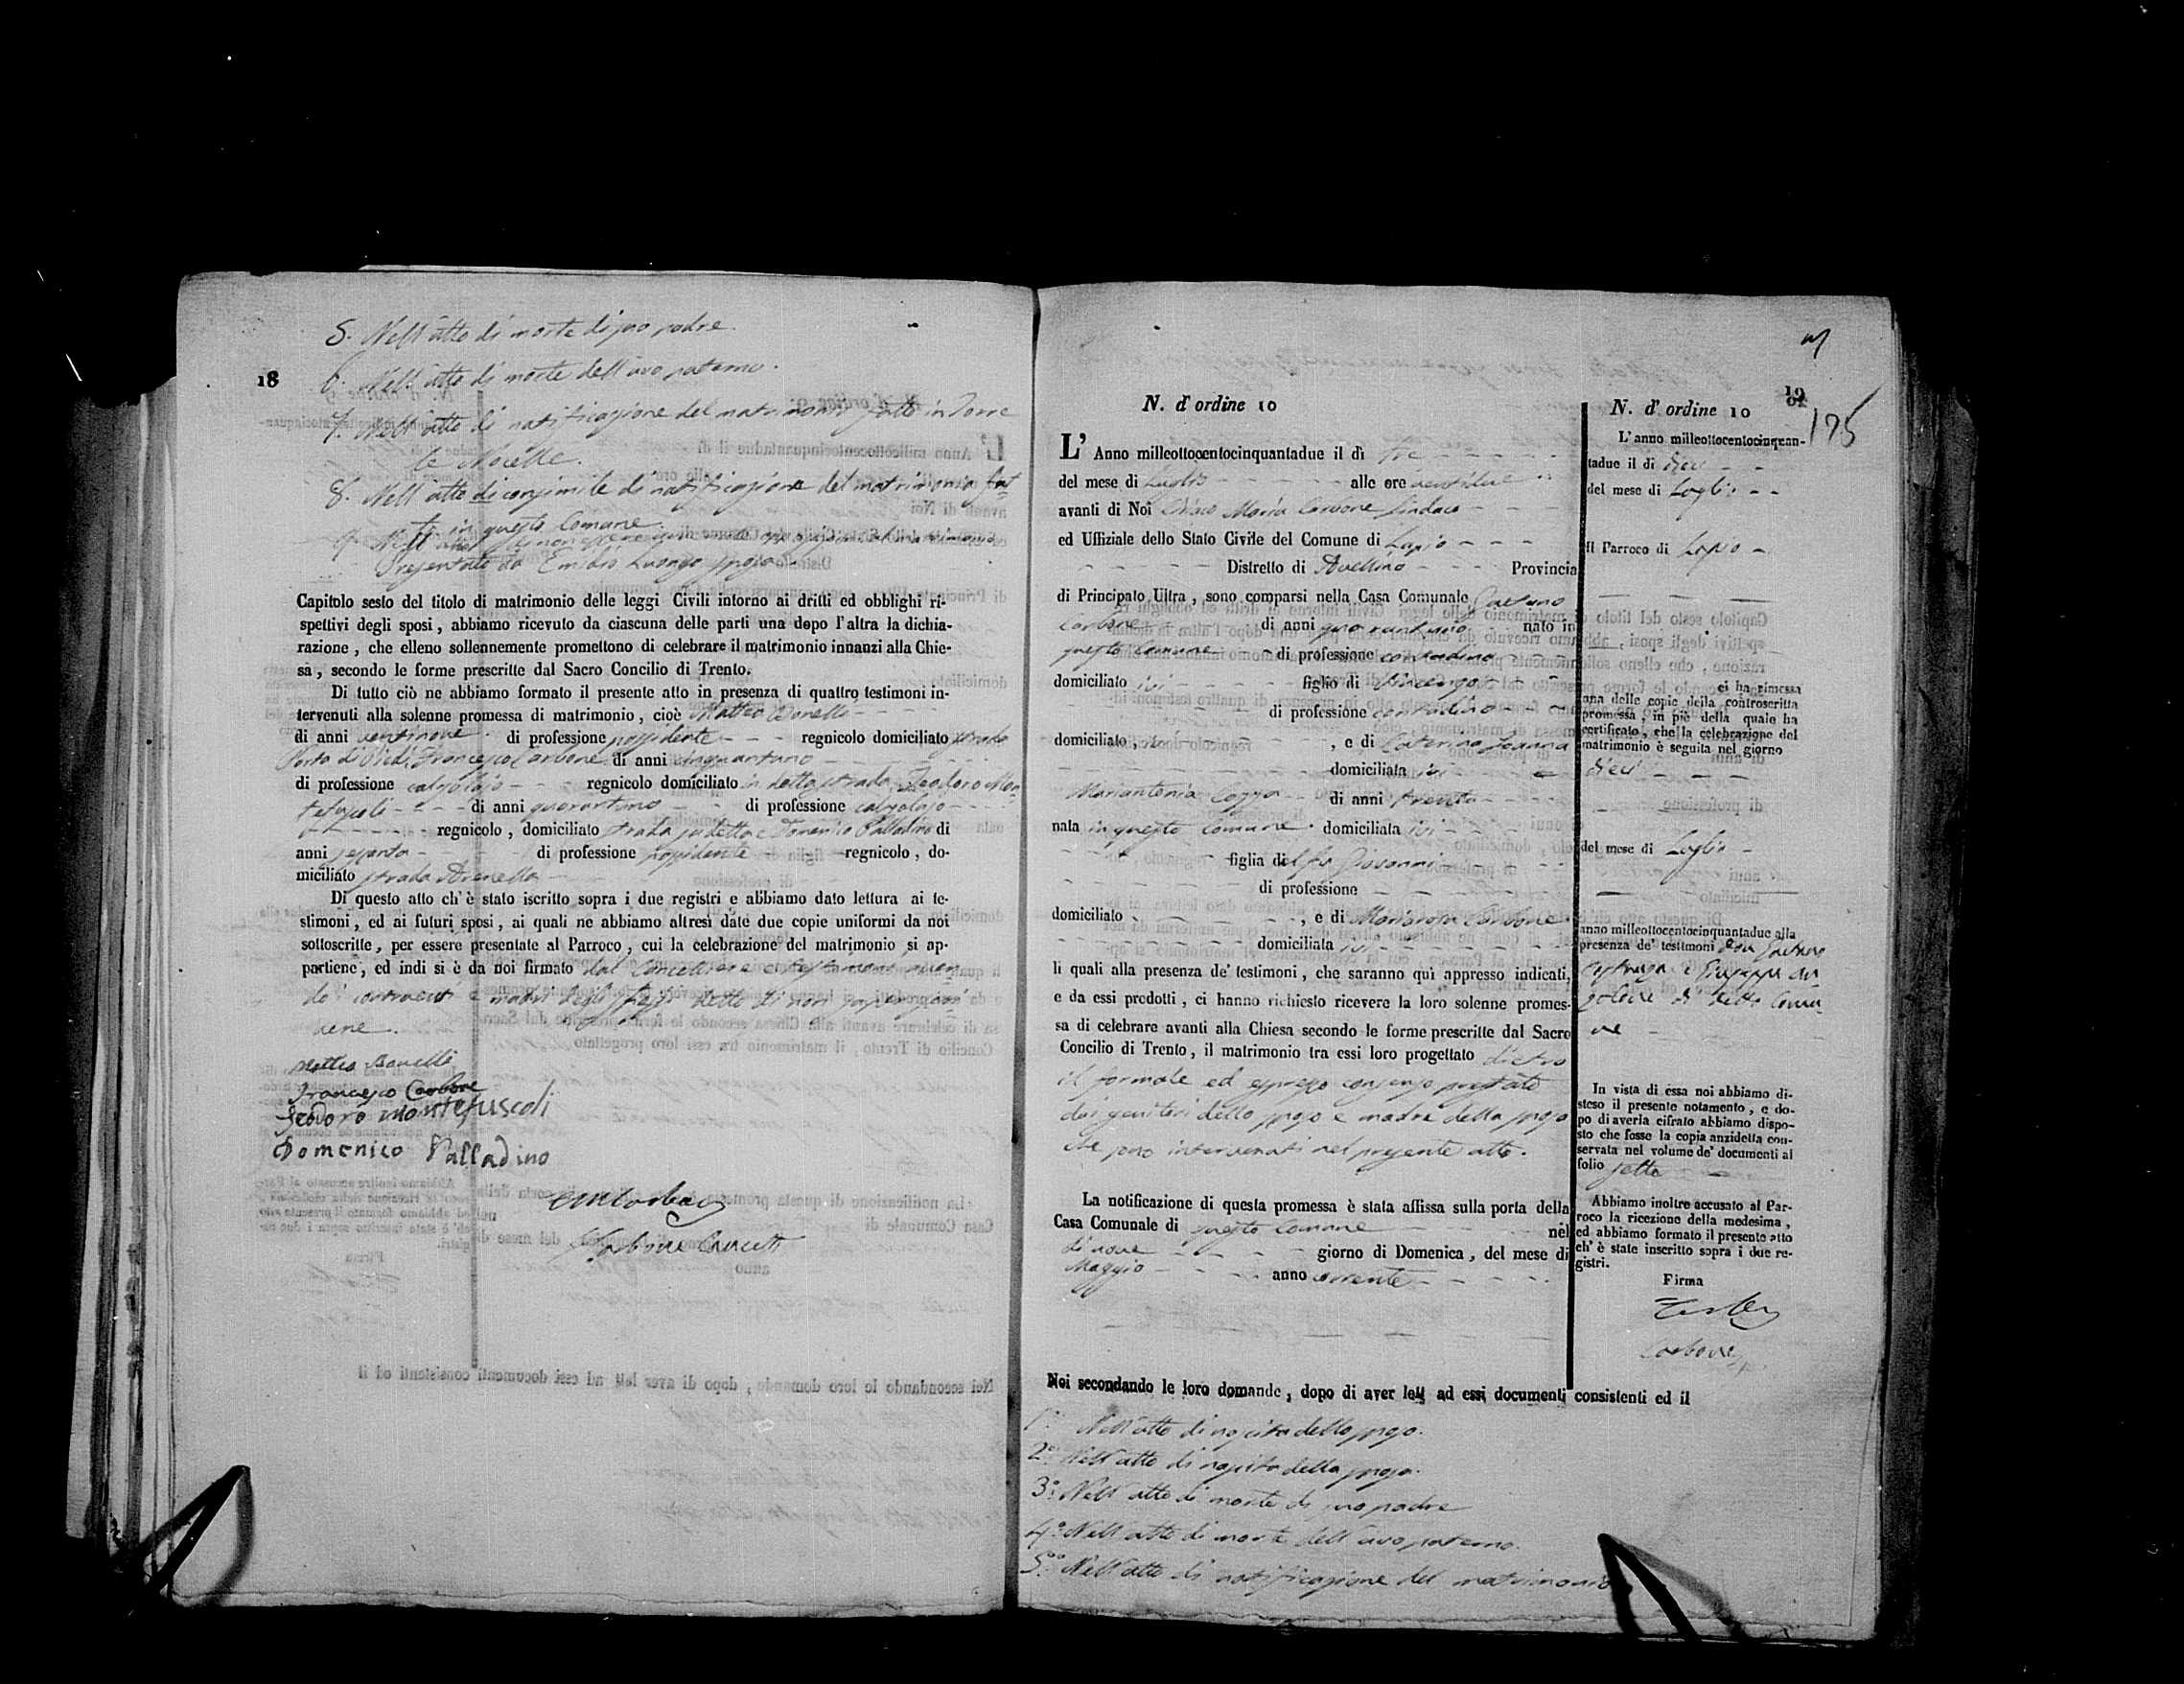 5. Nell'atto di morte di suo padre.
18
6. Nell'atto di morte dell'avo paterno.
7. Nell'atto di notificazione del matrimonio fatto in Torre
le Nocelle.
8. Nell'atto di consimile di notificazione del matrimonio fat-
to in questo Comune.
9. Nell' di non essere opposizione al matrimonio
Presentato da Emidio Luongo sposo.
Capitolo sesto del titolo di matrimonio delle leggi Civili intorno ai dritti ed obblighi ri-
spettivi degli sposi, abbiamo ricevuto da ciascuna delle parti una dopo l'altra la dichia-
razione, che elleno sollennemente promettono di celebrare il matrimonio innanzi alla Chie-
sa, secondo le forme prescritte dal Sacro Concilio di Trento.
Di tutto ciò ne abbiamo formato il presente atto in presenza di quattro testimoni in-
tervenuti alla solenne promessa di matrimonio, cioè Matteo Bonelli
di anni ventinove di professione possidente regnicolo domiciliato strada
Francesco Carbone di anni cinquantuno
di professione calzolajo regnicolo domiciliato in detta strada, Teodoro Mon-
tefuscoli di anni quarantuno di professione calzolajo
regnicolo, domiciliato strada sudetta e Domenico Palladino di
anni sessanta di professione possidente regnicolo, do-
miciliato strada Arenella
Di questo atto ch'è stato iscritto sopra i due registri e abbiamo dato lettura ai te-
stimoni, ed ai futuri sposi, ai quali ne abbiamo altresì date due copie uniformi da noi
sottoscritte, per essere presentate al Parroco, cui la celebrazione del matrimonio si ap-
partiene, ed indi si è da noi firmato dal Cancelliere e testimoni aven-
do i contraenti e madri degli stessi detto di non saper scri-
vere.
Matteo Bonelli
Francesco Carbone
Teodoro Montefuscoli
Domenico Palladino
Carbone
19
175
N. d'ordine 10
L'Anno milleottocentocinquantadue il dì tre
del mese di Luglio alle ore ventidue
avanti di Noi Ciriaco Maria Carbone Sindaco
ed Uffiziale dello Stato Civile del Comune di Lapio
Distretto di Avellino Provincia
di Principato Ultra, sono comparsi nella Casa Comunale Gaetano
Carbone di anni quarantuno nato in
questo Comune di professione contadino
domiciliato ivi figlio di Vincenzo
di professione contadino
domiciliato ivi, e di Caterina
domiciliata ivi
Mariantonia Cozza di anni trenta
nata in questo Comune domiciliata ivi
figlia del fu Giovanni
di professione
domiciliato, e di Mariarosa Carbone
domiciliata ivi
li quali alla presenza de' testimoni, che saranno quì appresso indicati,
e da essi prodotti, ci hanno richiesto ricevere la loro solenne promes-
sa di celebrare avanti alla Chiesa secondo le forme prescritte dal Sacro
Concilio di Trento, il matrimonio tra essi loro progettato dietro
il formale ed espresso consenso prestato
dai genitori dello sposo e madre della sposa
che sono intervenuti nel presente atto.
La notificazione di questa promessa è stata affissa sulla porta della
Casa Comunale di questo Comune nel
dì nove giorno di Domenica, del mese di
Maggio anno corrente
N. d'ordine 10
L'anno milleottocentocinquan-
tadue il dì dieci
del mese di Luglio
Il Parroco di Lapio
ci ha rimessa
una delle copie della controscritta
promessa, in piè della quale ha
certificato, che la celebrazione del
matrimonio è seguita nel giorno
dieci
del mese di Luglio
anno milleottocentocinquantadue alla
presenza de' testimoni Don Gaetano
e Giuseppe
di detto Comu-
ne
In vista di essa noi abbiamo di-
steso il presente notamento, e do-
po di averla cifrato abbiamo dispo-
sto che fosse la copia anzidetta con-
servata nel volume de' documenti al
folio sette
Abbiamo inoltre accusato al Par-
roco la ricezione della medesima,
ed abbiamo formato il presente atto
ch'è stato inscritto sopra i due re-
gistri.
Firma
Carbone
Noi secondando le loro domande, dopo di aver letti ad essi documenti consistenti ed il
1° Nell'atto di nascita dello sposo.
2° Nell'atto di nascita della sposa.
3° Nell'atto di morte di suo padre
4° Nell'atto di morte dell'avo paterno.
5° Nell'atto di notificazione del matrimonio